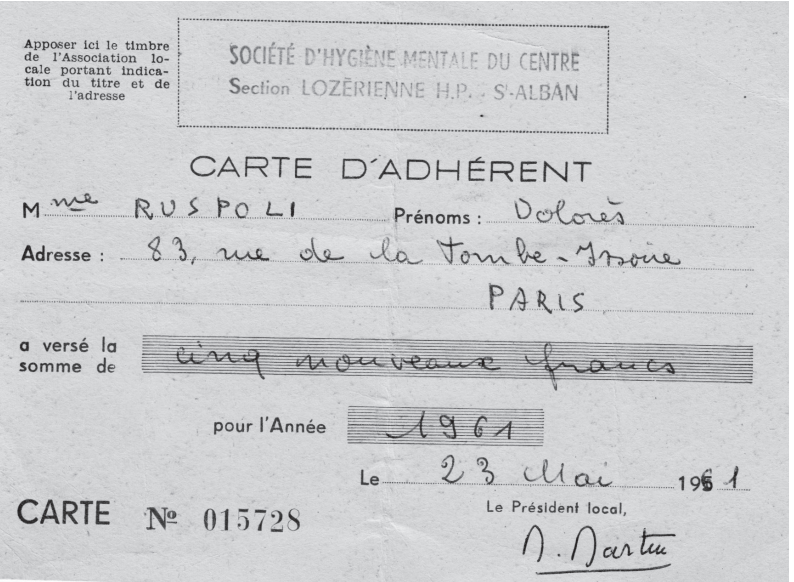 Apposer ici le timbre
de l'Association lo-
cale portant indica-
tion du titre et de
l'adresse
SOCIÉTÉ D'HYGIÈNE MENTALE DU CENTRE
Section LOZÉRIENNE H.P. - St-ALBAN
CARTE D'ADHÉRENT
Mme RUSPOLI Prénoms : Dolorès
Adresse : 83, rue de la Tombe-Issoire
PARIS
a versé la
somme de cinq nouveaux francs
pour l'Année 1961
Le 23 Mai 1961
CARTE Nº 015728
Le Président local,